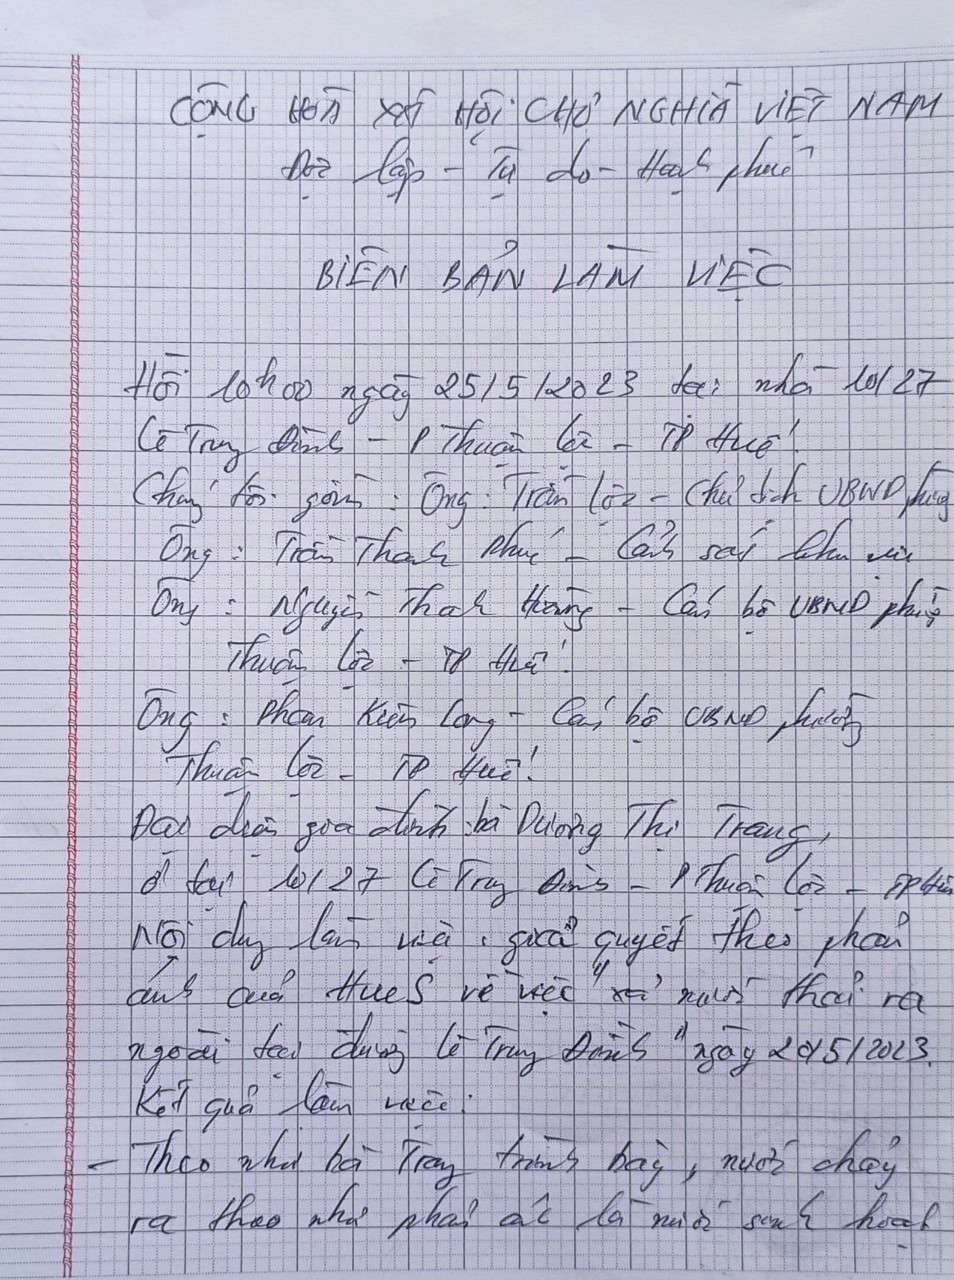 CỘNG HÒA XÃ HỘI CHỦ NGHĨA VIỆT NAM
Độc lập - Tự do - Hạnh phúc
BIÊN BẢN LÀM VIỆC
Hồi 10h00 ngày 25/5/2023 tại nhà 10/27
Lê Trung Đình - P Thuận Lộc - TP Huế.
Chúng tôi gồm: Ông: Trần Lộc - Chủ tịch UBND phường
Ông: Trần Thanh Phúc - Cảnh sát khu vực
Ông: Nguyễn Thanh Hoàng - Cán bộ UBND phường
Thuận Lộc - TP Huế.
Ông: Phan Kiên Long - Cán bộ UBND phường
Thuận Lộc - TP Huế.
Đại diện gia đình: bà Dương Thị Trang,
ở tại 10/27 Lê Trung Đình - P Thuận Lộc - TP Huế
Nội dung làm việc: giải quyết theo phản
ánh của HueS về việc "xả nước thải ra
ngoài tại đường Lê Trung Đình" ngày 20/5/2023.
Kết quả làm việc:
- Theo như bà Trang trình bày, nước chảy
ra theo như phản ánh là nước sinh hoạt